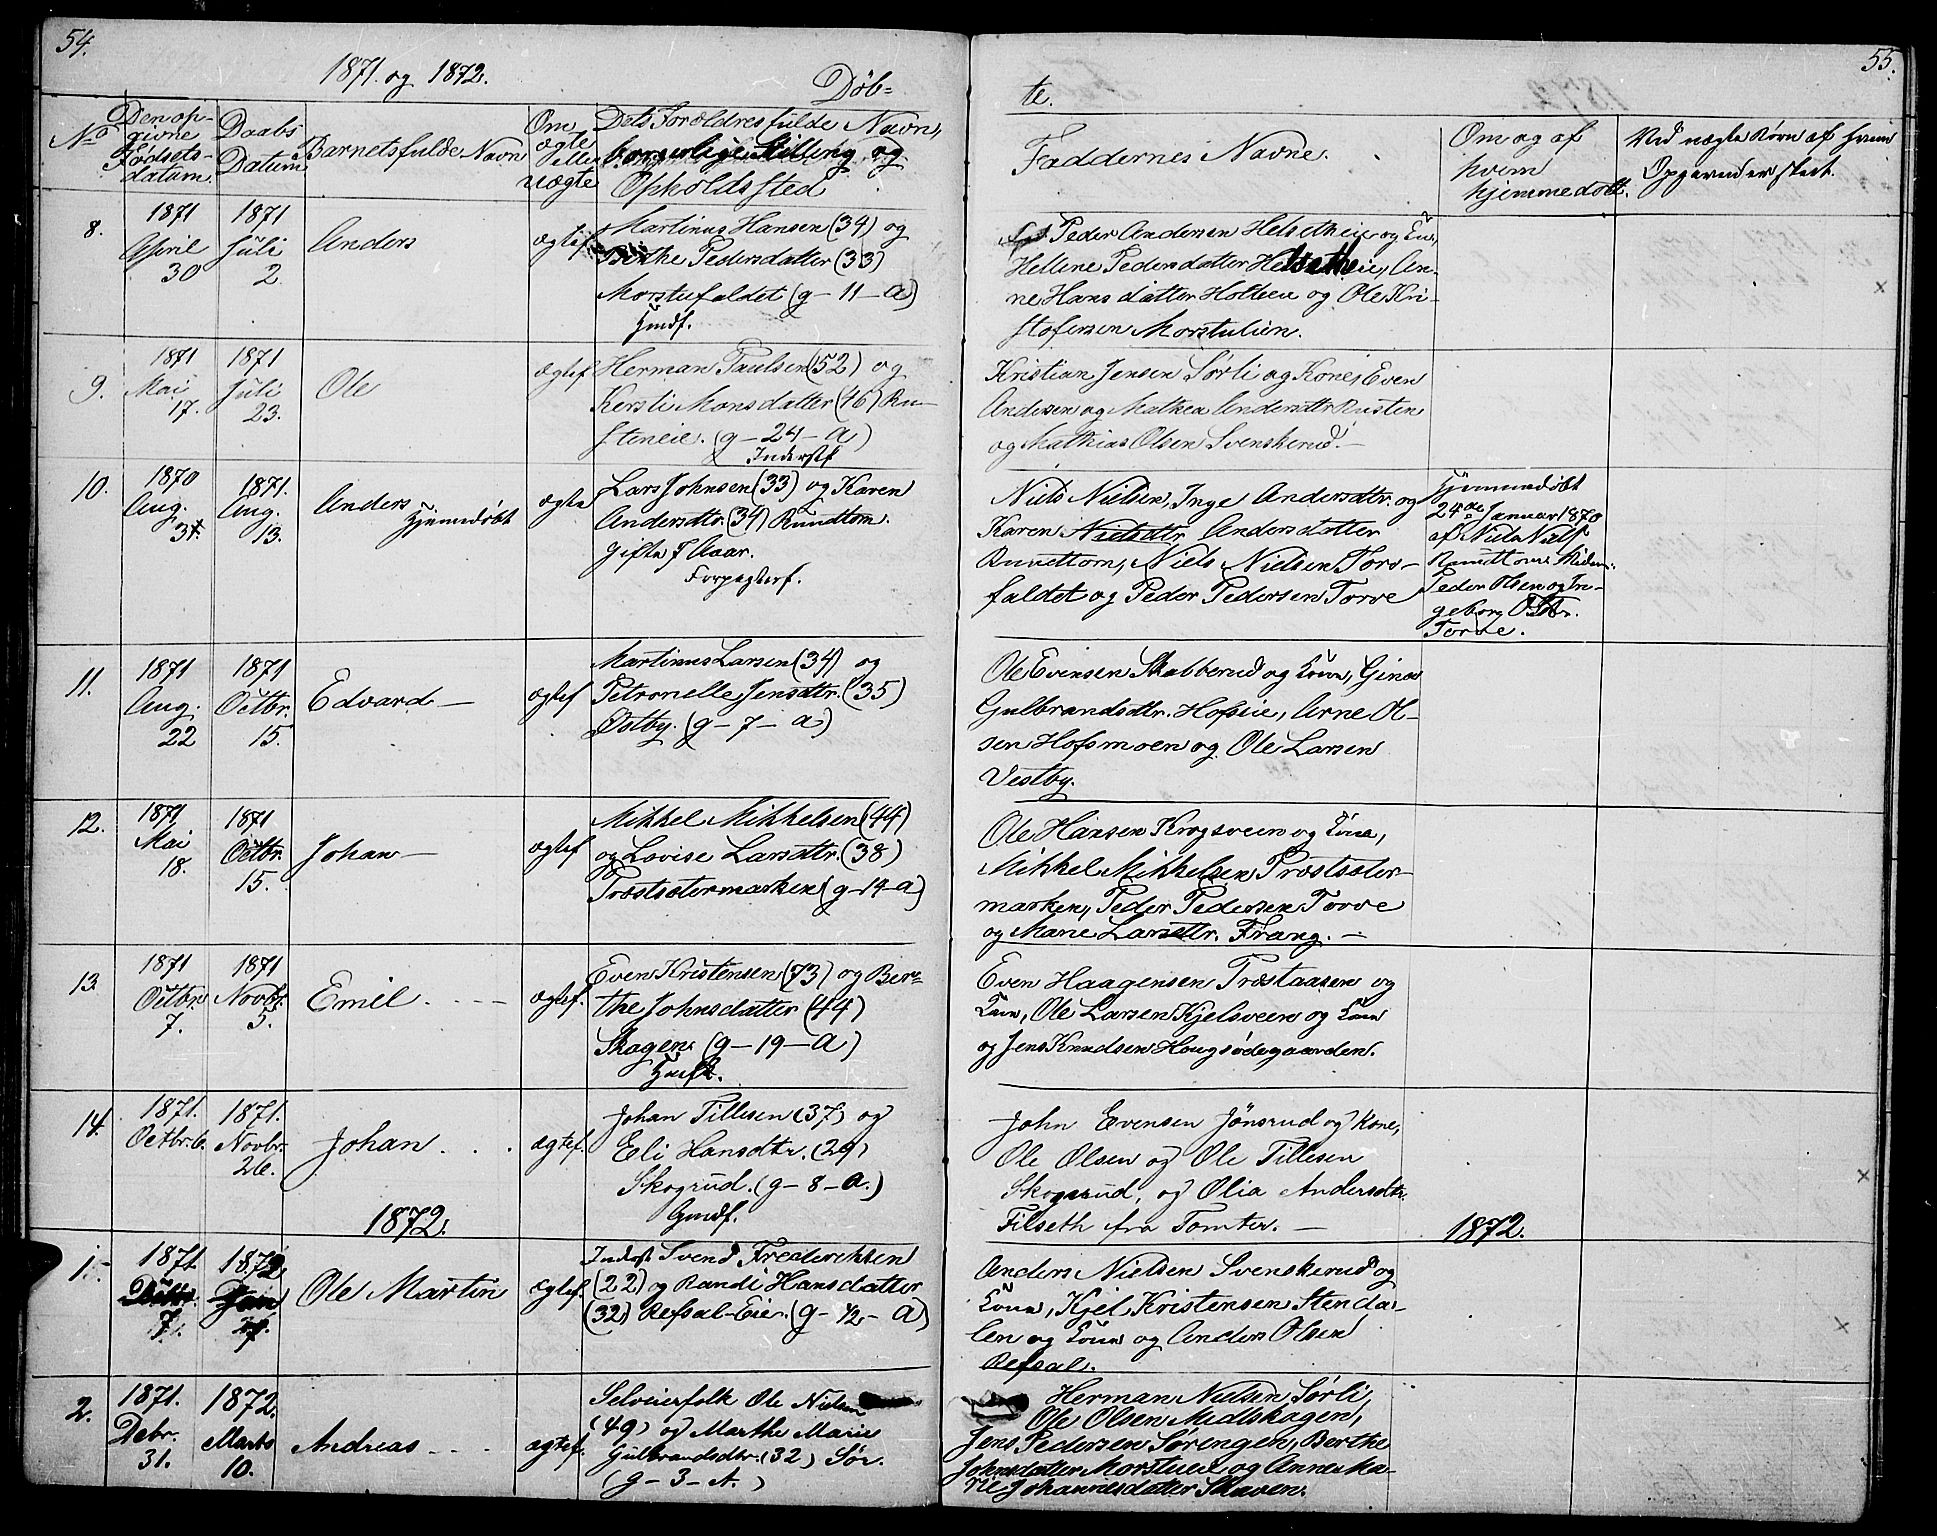 54.
1871. og 1872.
Døb=
No
Den op-
givne
Fødsels-
datum.
Daabs
Datum
Barnets fulde Navn
Om
ægte
eller
uægte
Dets Forældres fulde Navn,
borgerlige Stilling og
Opholdssted
8.
1871
April
30
1871
Juli
2.
Anders
ægtef.
Martinus Hansen (34) og
Birthe Pedersdatter (33)
Morstufaldet (g-11-A)
Hmdf.
9.
1871
Mai
17.
1871
Juli
23.
Ole
ægtef
Herman Paulsen (52) og
Kersti Monsdatter (46) Ru-
steneie. (g-24-A)
Inderstf
10.
1870
Aug.
31.
1871.
Aug.
13.
Anders
Hjemmedøbt
ægte
Lars Johnsen (33) og Karen
Andersdtr. (34) Rundtom.
gifte 7 Aar.
Forpagterf.
11.
1871
Aug.
22
1871
Octbr.
15.
Edvard —
ægtef
Martinus Larsen (34) og
Petronelle Jensdtr. (35)
Østby. (g-7-a)
12.
1871
Mai
18.
1871
Octbr.
15.
Johan —
ægtef
Mikkel Mikkelsen (44)
og Lovise Larsdtr. (38)
Trostsætermarken (g-14-a)
13.
1871
Octbr.
7.
1871
Novbr.
5.
Emil.
ægtef.
Even Kristensen (73) og Ber=
the Johnsdatter (44)
Skagen (g-19-A)
14.
1871.
Octbr. 6.
1871.
Novbr.
26.
Johan
ægtef.
Johan Tillesen (37) og
Eli Hansdtr. (29)
Skogrud. (g-8-a.)
Gmdf.
1872.
1.
1871.
7.
1872.
Jan
Ole Martin
ægtef.
Inderst Svend Frederikksen
(22) og Randi Hansdatter
(32) Refsal-Eie. (g-½-A)
2.
1871.
Debr.
31.
1872.
Marts
10.
Andreas
ægtef.
Selveierfolk Ole Nielsen
(49) og Marthe Marie
Gulbrandsdtr. (32) Sør.
(g-3-A.)
55.
te.
Faddernes Navne.
Om og af
hvem
hjemmedøbt.
Ved uægte Børn af hvem
Opgivend er skeet.
Peder Andersen Helsetheie og
Hellene Pedersdatter Helsetheie, An-
ne Hansdatter Holteie og Ole Kri-
stofersen Morstulien.
Kristian Jensen Sørli og Kone, Even
Andersen og Mathea Andersdtr Rusten
og Mathias Olsen Svenskerud. —
Niels Nielsen, Inge Andersdtr. og
Karen Nielsdtr. Andersdatter
Rundtom, Niels Nielsen Torv-
faldet og Peder Pedersen Torve
Hjemmedøbt
24de Januar 1870
af Niels Niels.
Rundtom.
Peder Olsen og In-
geborg Olsdtr.
Torve.
Ole Evensen Skabberud og Kone, Gina
Gulbrandsdtr. Hofseie, Arne Ol-
sen Hofsmoen og Ole Larsen
Vestby.
Ole Hansen Krogsveen og Kone,
Mikkel Mikkelsen Trostsæter-
marken, Peder Pedersen Torve
og Marie Larsdtr. Frang. —
Even Haagensen Trostaasen og
Kone, Ole Larsen Kjelsveen og Kone
og Jens Knudsen Haugsødegaarden.
John Evensen Jønsrud og Kone,
Ole Olsen og Ole Tillesen
Skogsrud, og Olia Andersdtr.
Filseth fra Tomter. —
1872.
Anders Nielsen Svenskerud og
Kone, Kjel Kristensen Stenda-
len og Kone og Anders Olsen
Refsal.
Herman Nielsen Sørli,
Ole Olsen Midtskagen,
Jens Pedersen Sørengen, Berthe
Johnsdatter Morstueie og Anne Ma-
rie Johannesdatter Skaven.